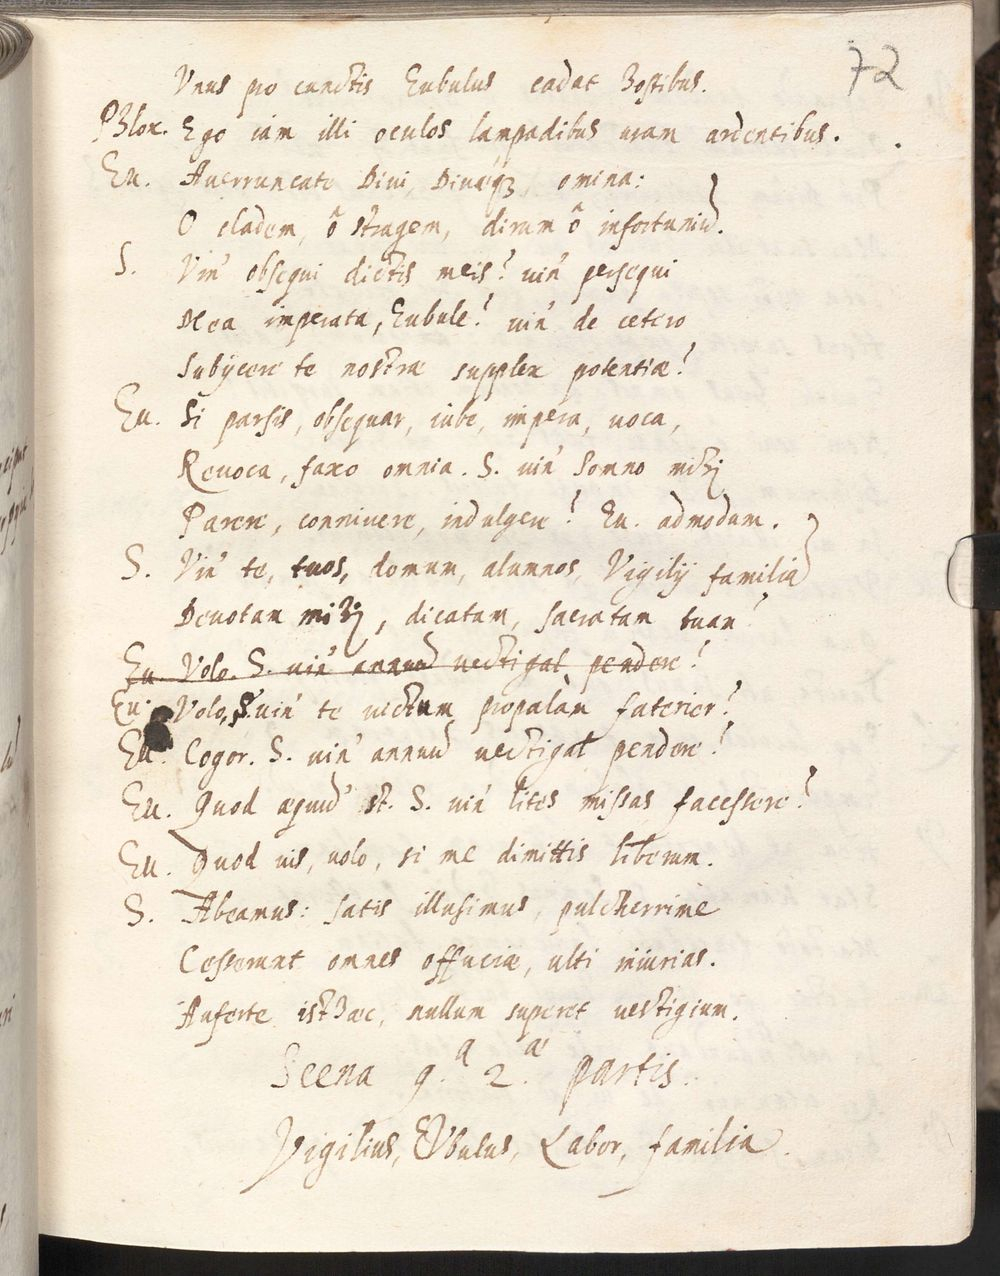 72
Vnus pro cunctis Eubulus cadat hostibus.
Phlox. Ego iam illi oculos lampadibus uram ardentibus.
Eu. Auerruncate Diui, Diuaeq3 omina:
O cladem, ô stragem, dirum ô infortuniũ.
S. Vin' obsequi dictis meis? uin' persequi
Mea imperata, Eubule? uin' de cetero
Subijcere te nostrae supplex potentiae?
Eu. Si parsis, obsequar, iube, impera, uoca,
Reuoca, faxo omnia. S. uin' somno mihi
Parere, conniuere, indulgere? Eu. admodum.
S. Vin' te, tuos, domum, alumnos, Vigilij familiã
Deuotam mihi, dicatam, sacratam tuam?
Eu. Volo. S. uin' annuũ uectigal pendere?
Eu. Volo, S. uin' te uictum propalàm faterier?
Eu. Cogor. S. uin' annuũ uectigal pendere?
Eu. Quod aequũ st. S. uin' lites missas facessere?
Eu. Quod uis, uolo, si me dimittis liberum.
S. Abeamus: satis illusimus, pulcherrime
Cesserunt omnes offuciae, ulti iniurias.
Auferte isthaec, nullum superet uestigium.
Scena 9.a 2.ae partis.
Vigilius, Eubulus, Labor, familia.